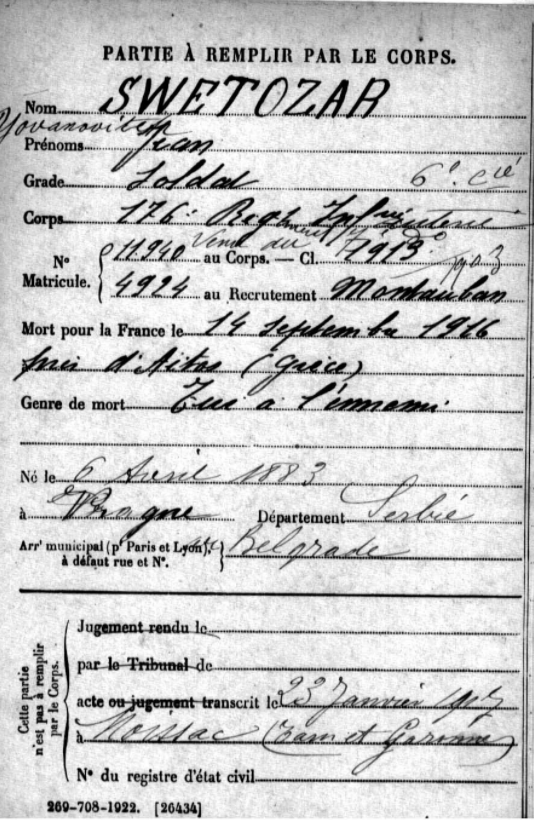 PARTIE À REMPLIR PAR LE CORPS.
Nom SWETOZAR
Yovanovitch
Prénoms Jean
Grade Soldat 6e Cie
Corps 176e Regt Infanterie
N° Matricule. 11.940 au Corps. — Cl. 1903
4924 au Recrutement Montauban
Mort pour la France le 14 septembre 1916
près d'Aitos (Grèce)
Genre de mort Tué à l'ennemi
Né le 6 Avril 1883
à Département Serbie
Arrt municipal (pr Paris et Lyon), à défaut rue et N°. Belgrade
Cette partie n'est pas à remplir par le Corps.
Jugement rendu le
par le Tribunal de
acte ou jugement transcrit le 23 Janvier 1917
à Moissac (Tarn et Garonne)
N° du registre d'état civil
269-708-1922. [26434]